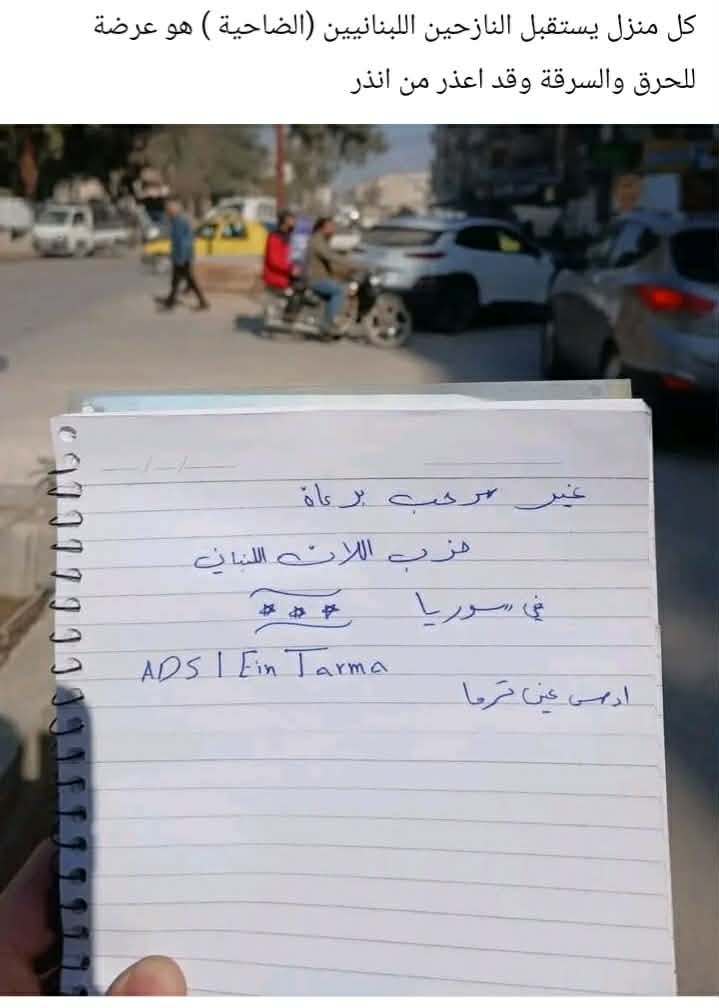 كل منزل يستقبل النازحين اللبنانيين (الضاحية ) هو عرضة
للحرق والسرقة وقد اعذر من انذر
غير مرحب برعاة
حزب اللات اللبناني
في سوريا ***
ADS | Ein Tarma
ادس عين ترما